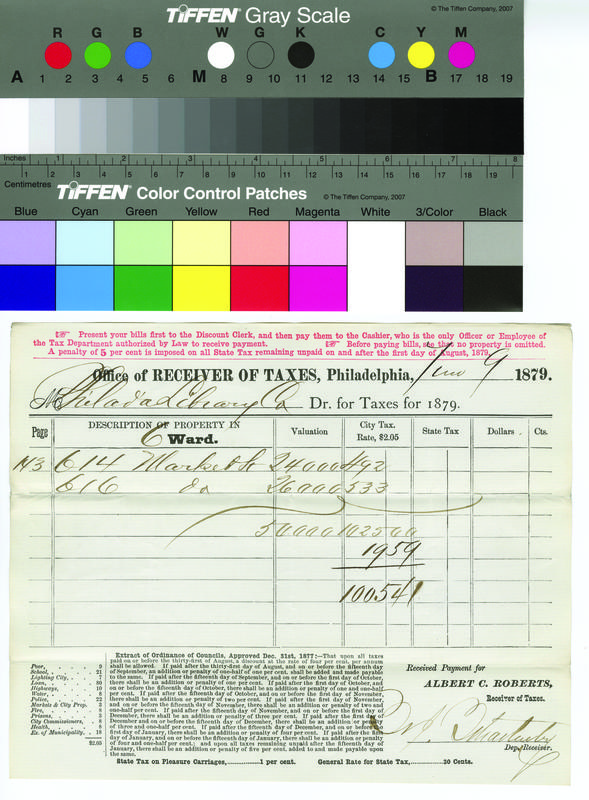 © The Tiffen Company, 2007
TIFFEN® Gray Scale
R G B W G K C Y M
A 1 2 3 4 5 6 M 8 9 10 11 12 13 14 15 B 17 18 19
Inches 1 2 3 4 5 6 7 8
Centimetres 1 2 3 4 5 6 7 8 9 10 11 12 13 14 15 16 17 18 19
TIFFEN® Color Control Patches © The Tiffen Company, 2007
Blue Cyan Green Yellow Red Magenta White 3/Color Black
Present your bills first to the Discount Clerk, and then pay them to the Cashier, who is the only Officer or Employee of
the Tax Department authorized by Law to receive payment. Before paying bills, see that no property is omitted.
A penalty of 5 per cent is imposed on all State Tax remaining unpaid on and after the first day of August, 1879.
Office of RECEIVER OF TAXES, Philadelphia, 9 1879.
M Philada Library Co Dr. for Taxes for 1879.
Page DESCRIPTION OF PROPERTY IN 6 Ward. Valuation City Tax. Rate, $2.05 State Tax Dollars Cts.
143 614 Market St 24000 492
616 do 26000 533
50000 1025 00
19 59
1005.41
Extract of Ordinance of Councils, Approved Dec. 31st, 1877:—That upon all taxes
paid on or before the thirty-first of August, a discount at the rate of four per cent. per annum
shall be allowed. If paid after the thirty-first day of August, and on or before the fifteenth day
of September, an addition or penalty of one-half of one per cent. shall be added and made payable
to the same. If paid after the fifteenth day of September, and on or before the first day of October,
there shall be an addition or penalty of one per cent. If paid after the first day of October, and
on or before the fifteenth day of October, there shall be an addition or penalty of one and one-half
per cent. If paid after the fifteenth day of October, and on or before the first day of November,
there shall be an addition or penalty of two per cent. If paid after the first day of November,
and on or before the fifteenth day of November, there shall be an addition or penalty of two and
one-half per cent. If paid after the fifteenth day of November, and on or before the first day of
December, there shall be an addition or penalty of three per cent. If paid after the first day of
December, and on or before the fifteenth day of December, there shall be an addition or penalty
of three and one-half per cent. If paid after the fifteenth day of December, and on or before the
first day of January, there shall be an addition or penalty of four per cent. If paid after the first
day of January, and on or before the fifteenth day of January, there shall be an addition or penalty
of four and one-half per cent.; and upon all taxes remaining unpaid after the fifteenth day of
January, there shall be an addition or penalty of five per cent. added to and made payable upon
the same.
Poor, 9
School, 21
Lighting City, 7
Loan, 80
Highways, 10
Water, 8
Police, 22
Markets & City Prop. 3
Fire, 8
Prisons, 3
City Commissioners, 8
Health, 8
Ex. of Municipality, 18
$2.05
Received Payment for
ALBERT C. ROBERTS,
Receiver of Taxes.
Dep. Receiver.
State Tax on Pleasure Carriages, 1 per cent. General Rate for State Tax, 30 Cents.